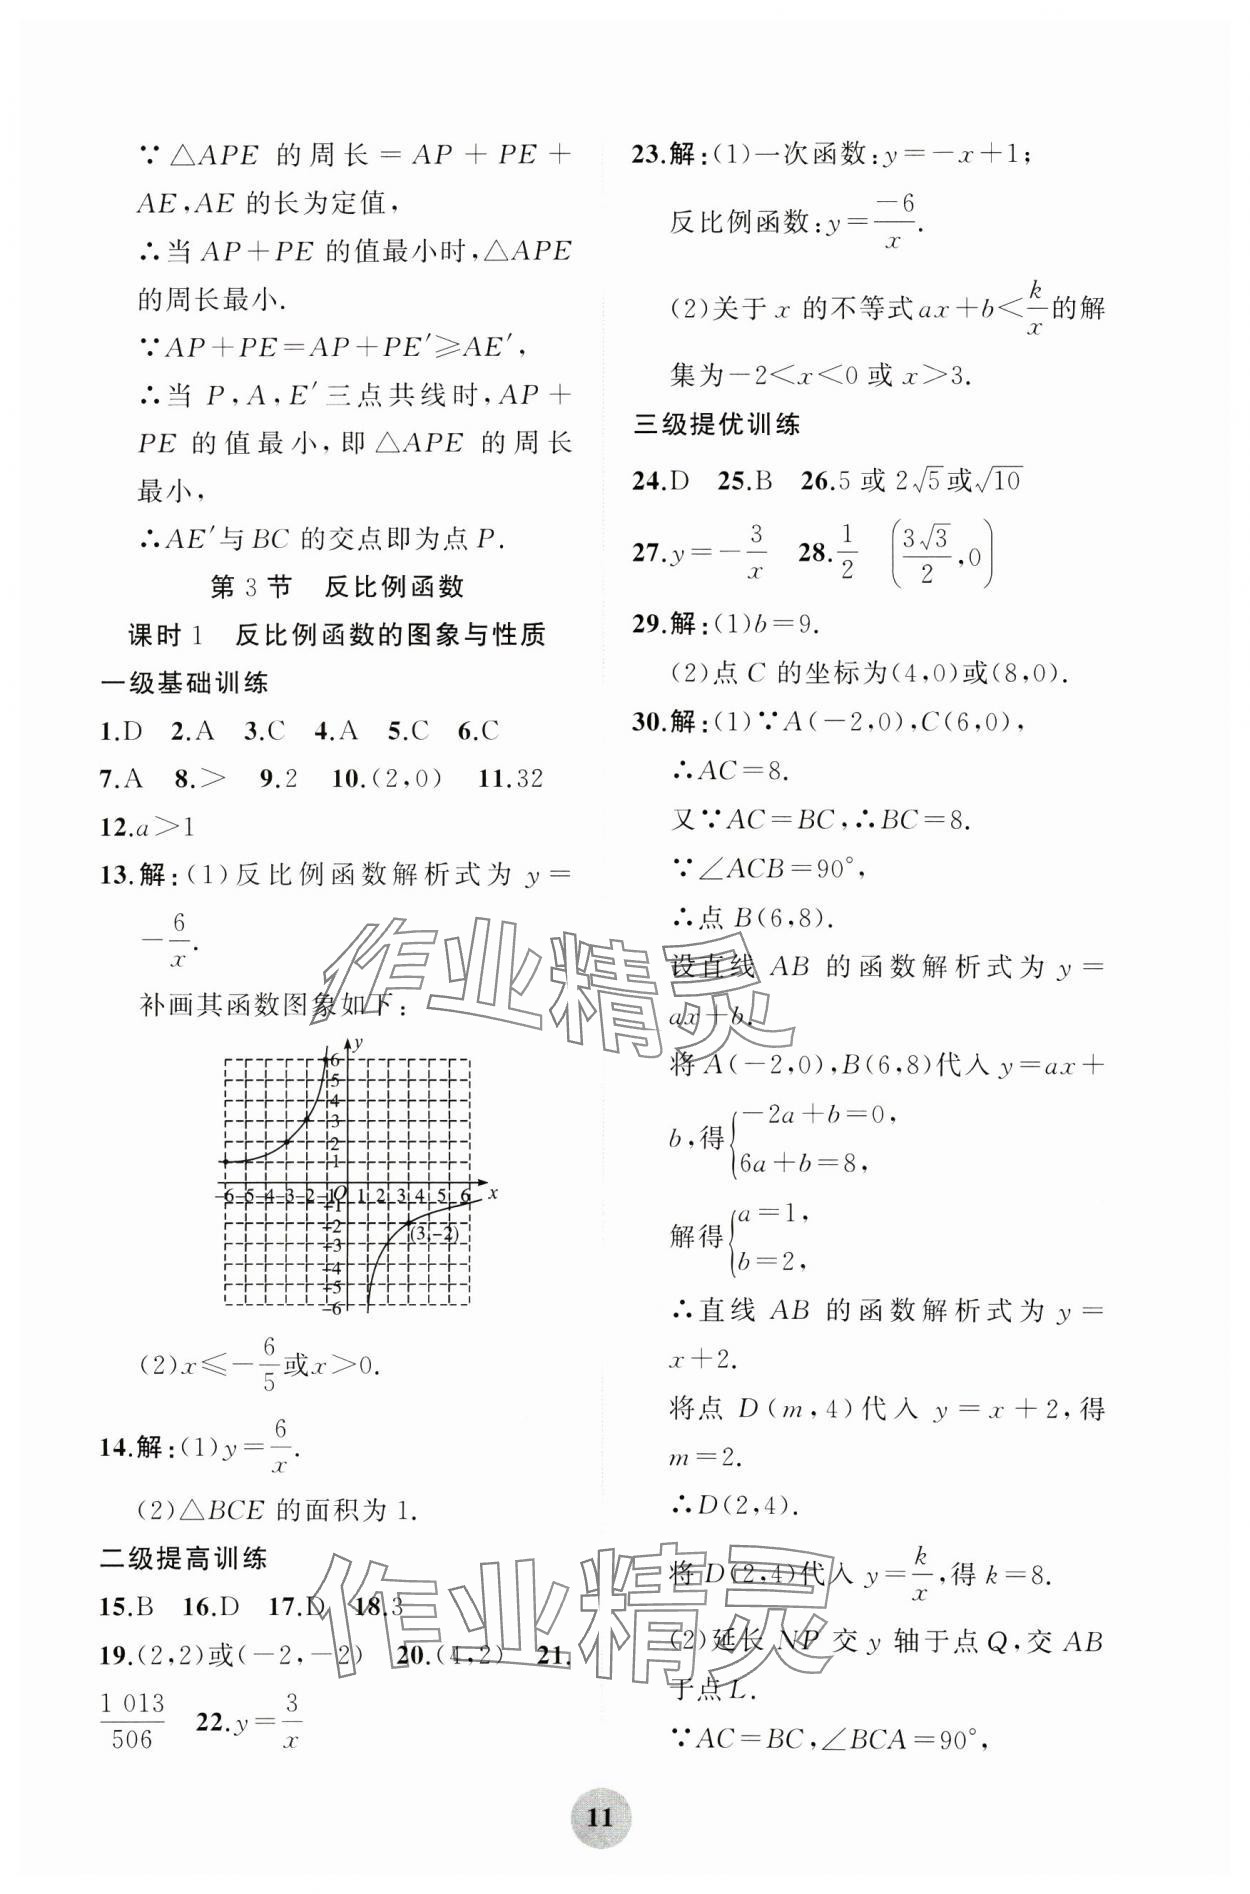 ∵△APE 的周长=AP+PE+
AE,AE 的长为定值,
∴当 AP+PE 的值最小时,△APE
的周长最小.
∵AP+PE=AP+PE′≥AE′,
∴当 P,A,E′三点共线时,AP+
PE 的值最小,即△APE 的周长
最小,
∴AE′与BC 的交点即为点 P.
第 3 节 反比例函数
课时 1 反比例函数的图象与性质
一级基础训练
1.D 2.A 3.C 4.A 5.C 6.C
7.A 8.> 9.2 10.(2,0) 11.32
12.a>1
13.解:(1)反比例函数解析式为 y=
-6/x.
补画其函数图象如下:
y
6
5
4
3
2
1
-6 -5 -4 -3 -2 -1 O 1 2 3 4 5 6 x
-1
-2
(3,-2)
-3
-4
-5
-6
(2)x≤-6/5或x>0.
14.解:(1)y=6/x.
(2)△BCE 的面积为 1.
二级提高训练
15.B 16.D 17.D 18.3
19.(2,2)或(-2,-2) 20.(4,2) 21.
1 013/506 22.y=3/x
23.解:(1)一次函数:y=-x+1;
反比例函数:y=-6/x.
(2)关于 x 的不等式ax+b<k/x的解
集为-2<x<0 或 x>3.
三级提优训练
24.D 25.B 26.5 或 2√5或√10
27.y=-3/x 28.1/2 (3√3/2,0)
29.解:(1)b=9.
(2)点 C 的坐标为(4,0)或(8,0).
30.解:(1)∵A(-2,0),C(6,0),
∴AC=8.
又∵AC=BC,∴BC=8.
∵∠ACB=90°,
∴点 B(6,8).
设直线 AB 的函数解析式为 y=
ax+b.
将A(-2,0),B(6,8)代入 y=ax+
b,得{-2a+b=0,
6a+b=8,
解得{a=1,
b=2,
∴直线 AB 的函数解析式为 y=
x+2.
将点 D(m,4)代入 y=x+2,得
m=2.
∴D(2,4).
将 D(2,4)代入 y=k/x,得 k=8.
(2)延长 NP 交 y 轴于点 Q,交 AB
于点L.
∵AC=BC,∠BCA=90°,
作业精灵
作业精灵
11